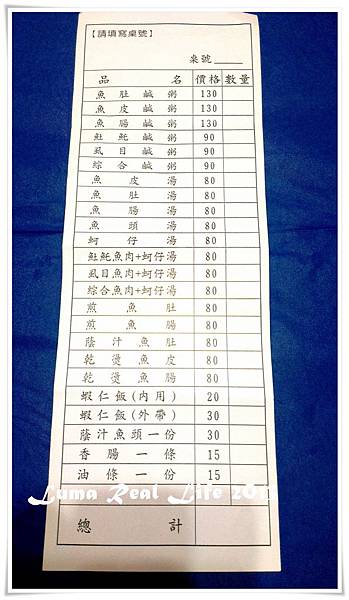 【請填寫桌號】
桌號
品名 價格 數量
魚肚鹹粥 130
魚皮鹹粥 130
魚腸鹹粥 130
魠魠鹹粥 90
虱目鹹粥 90
綜合鹹粥 90
魚皮湯 80
魚肚湯 80
魚腸湯 80
魚頭湯 80
蚵仔湯 80
魠魠魚肉+蚵仔湯 80
虱目魚肉+蚵仔湯 80
綜合魚肉+蚵仔湯 80
煎魚肚 80
煎魚腸 80
蔭汁魚肚 80
乾燙魚皮 80
乾燙魚腸 80
蝦仁飯(內用) 20
蝦仁飯(外帶) 30
蔭汁魚頭一份 30
香腸一條 15
油條一份 15
Luma Real Life
總計